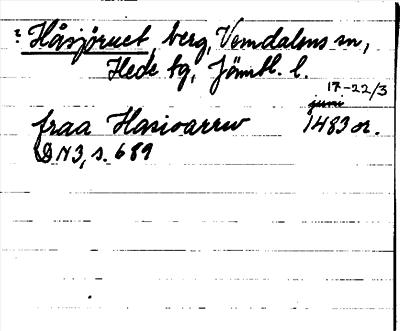 ? Håsjöruet, berg, Vemdalens sn,
Hede tg, Jämtl. l.
17-22/3
juni
fraa Hasioarrw 1483 or.
DN3, s. 689